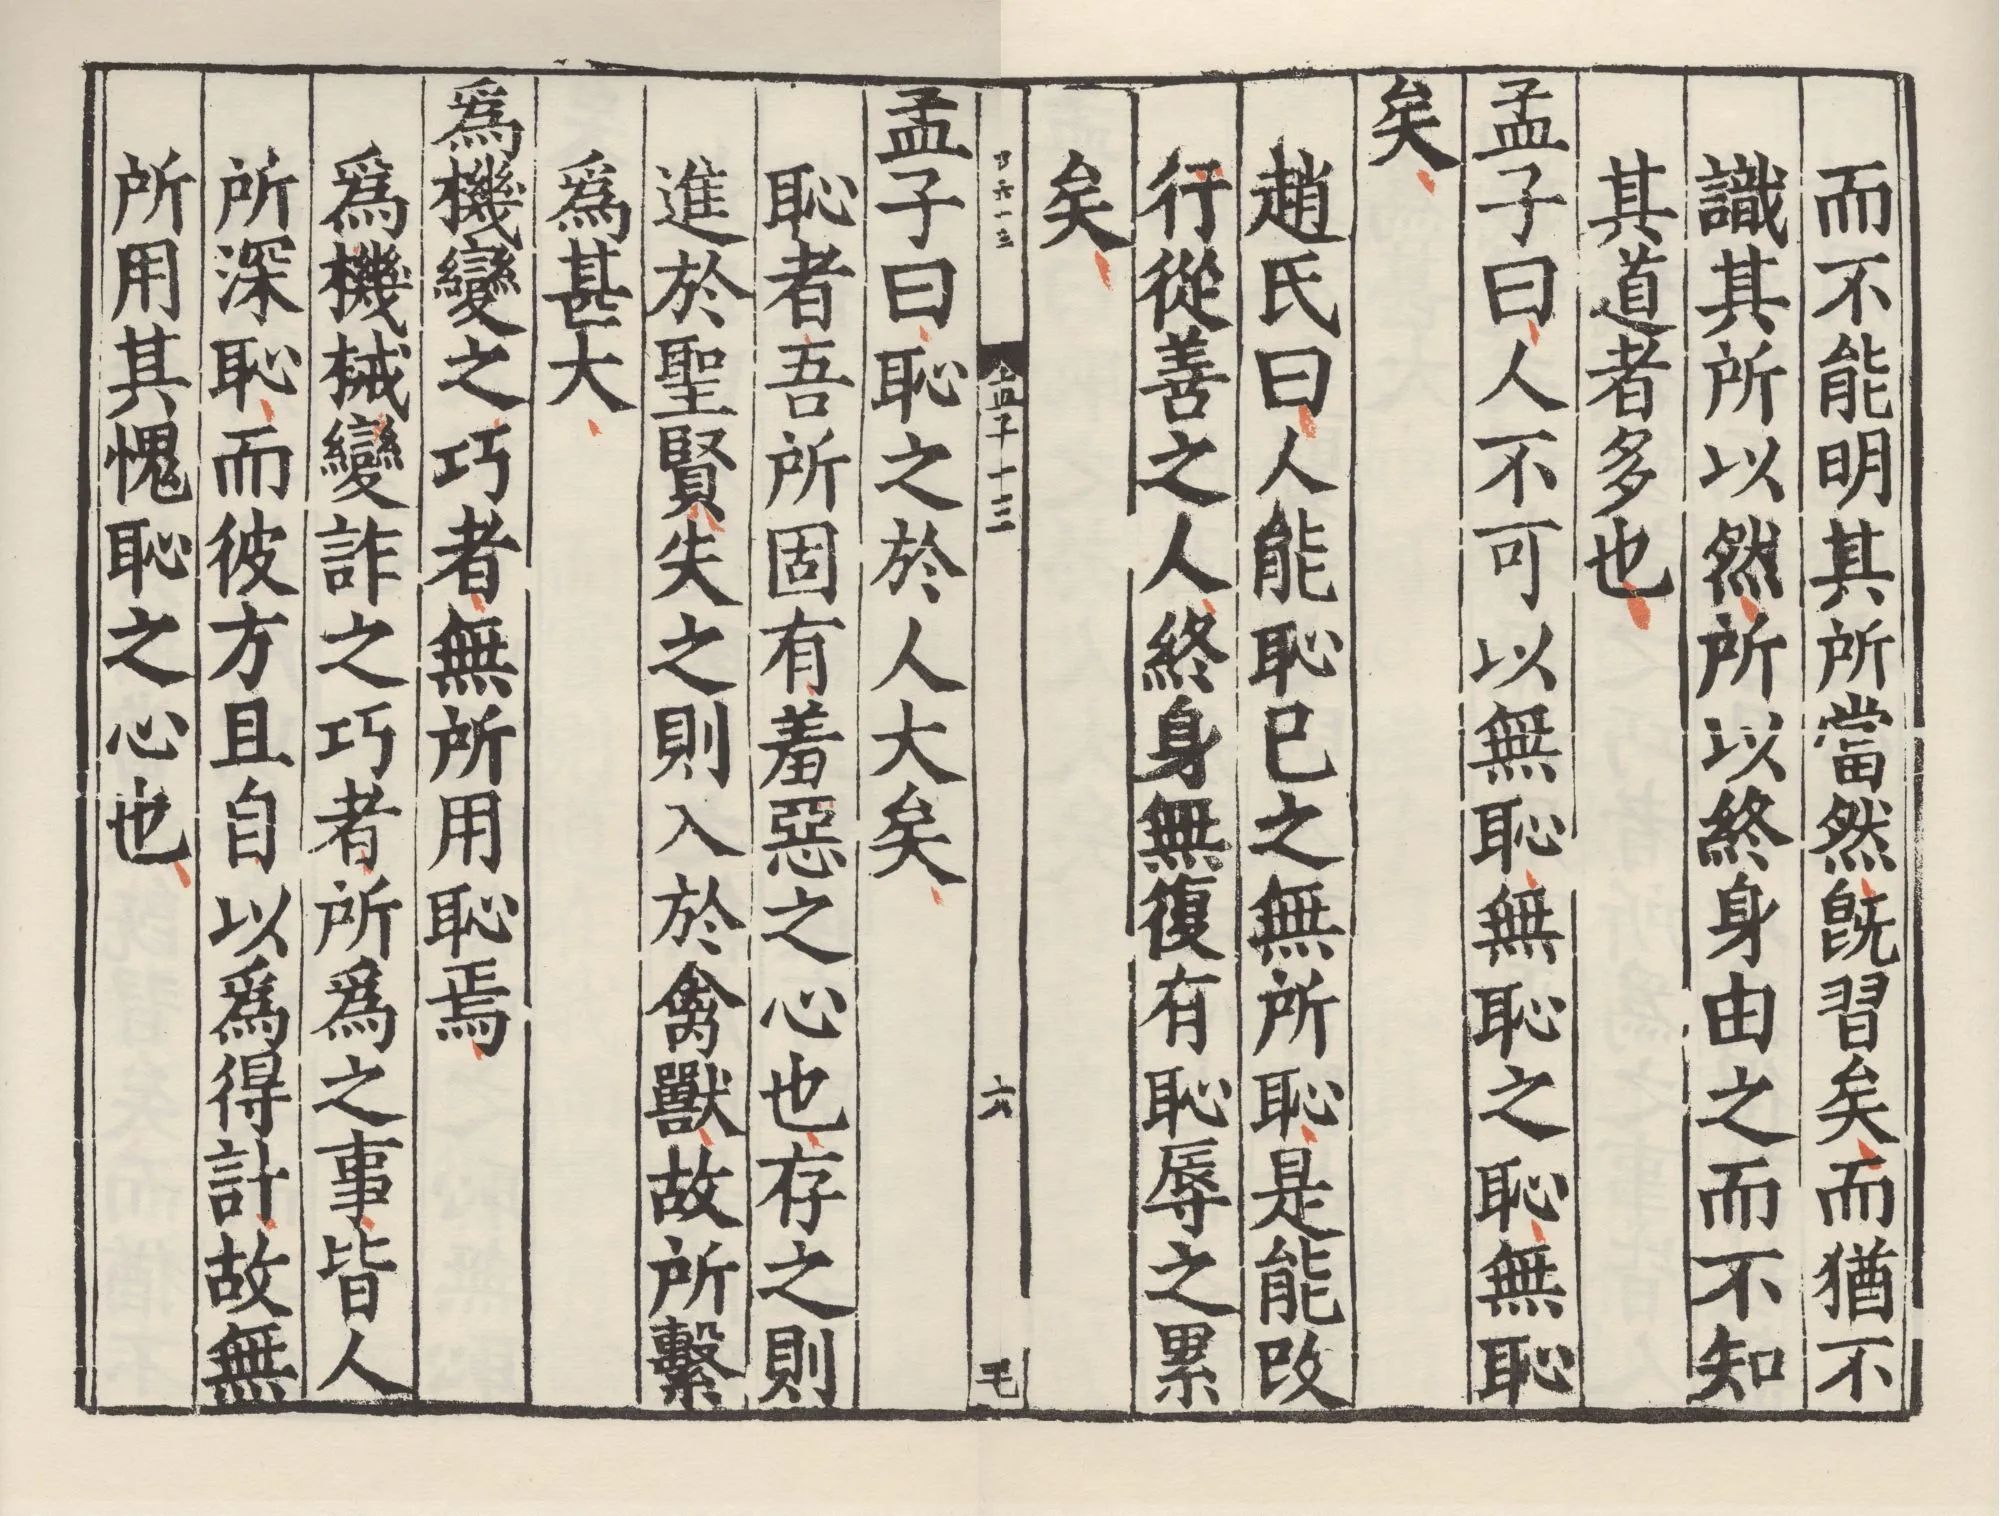 而不能明其所當然旣習矣而猶不
識其所以然所以終身由之而不知
其道者多也
孟子曰人不可以無恥無恥之恥無恥
矣
趙氏曰人能恥已之無所恥是能改
行從善之人終身無復有恥辱之累
矣
孟子十三
六
孟子曰恥之於人大矣
恥者吾所固有羞惡之心也存之則
進於聖賢失之則入於禽獸故所繫
爲甚大
爲機變之巧者無所用恥焉
爲機械變詐之巧者所爲之事皆人
所深恥而彼方且自以爲得計故無
所用其愧恥之心也